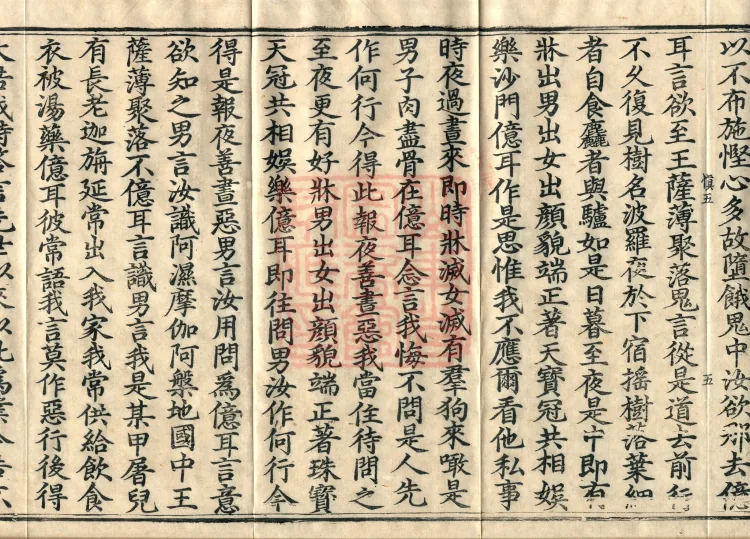 以不布施慳心多故墮餓鬼中汝欲那去億
耳言欲至王薩薄聚落鬼言從是道去前行
不久復見樹名波羅夜於下宿搖樹落葉細
者自食麤者與驢如是日暮至夜是中即有
牀出男出女出顏貌端正著天寶冠共相娛
樂沙門億耳作是思惟我不應爾看他私事
慎五
五
時夜過晝來即時牀滅女滅有羣狗來噉是
男子肉盡骨在億耳念言我悔不問是人先
作何行今得此報夜善晝惡我當住待問之
至夜更有好牀男出女出顏貌端正著珠寶
天冠共相娛樂億耳即往問男汝作何行今
得是報夜善晝惡男言汝用問為億耳言意
欲知之男言汝識阿濕摩伽阿槃地國中王
薩薄聚落不億耳言識男言我是某甲屠兒
有長老迦旃延常出入我家我常供給飲食
衣被湯藥億耳彼常語我言莫作惡行後得